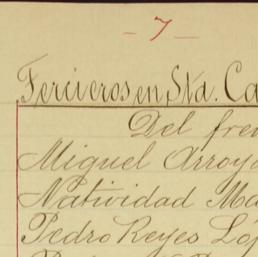 - 7 -
Tercieros en Sta. Ca
Del fren
Miguel Arroyo
Natividad Ma
Pedro Reyes Ló